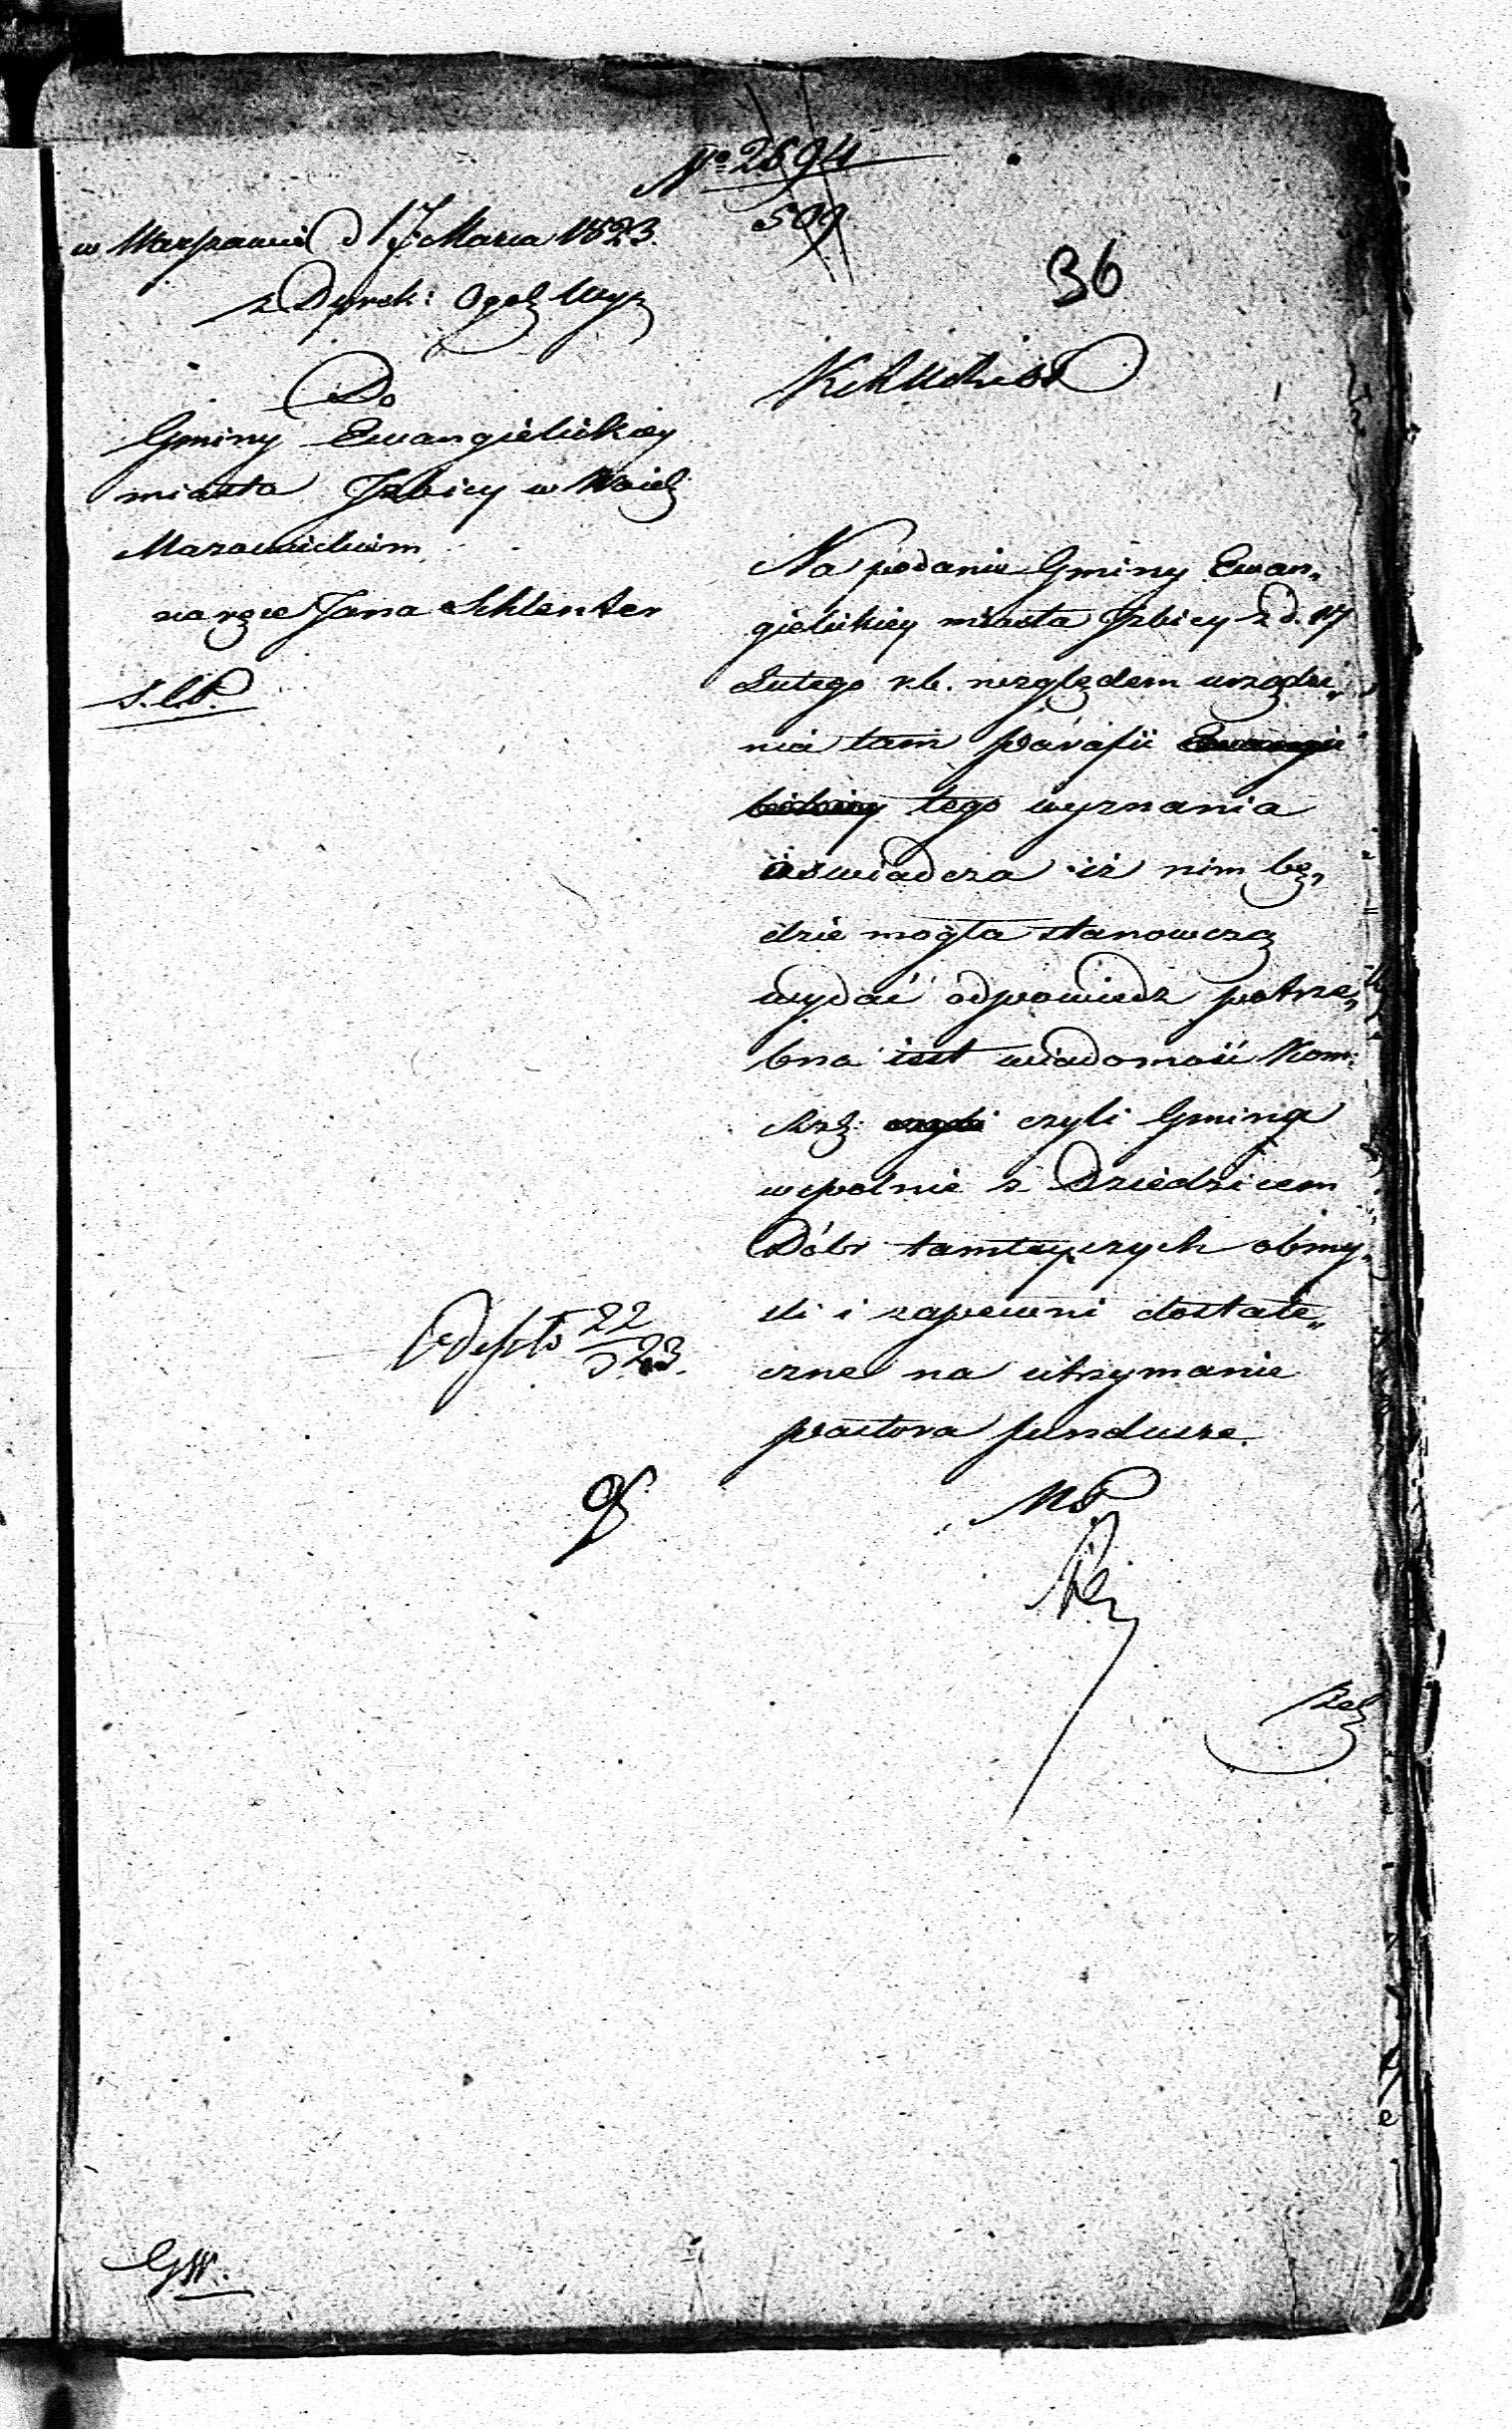 No 2694
509
36
w Warszawie d 17 Marca 1823.
z Dyrek: Ogól Wyz
Do
Gminy Ewangielickiey
miasta Izbicy w Woie
Mazowieckiem
na ręce Jana Schlenker
Na podanie Gminy Ewan„
gielickiey miasta Izbicy z d. 17
Lutego r.b. względem urządze„
nia tam Parafii Ewangie
lickiey tego wyznania
oświadcza iż nim bę„
dzie mogła stanowczą
wydać odpowiedź potrze„
bna iest wiadomość Kom:
Rzą: czyli czyli Gmina
wspolnie z Dziedzicem
Dóbr tamteyszych obmy„
śli i zapewni dostate„
czne na utrzymanie
pastora fundusze.
MP
GW.